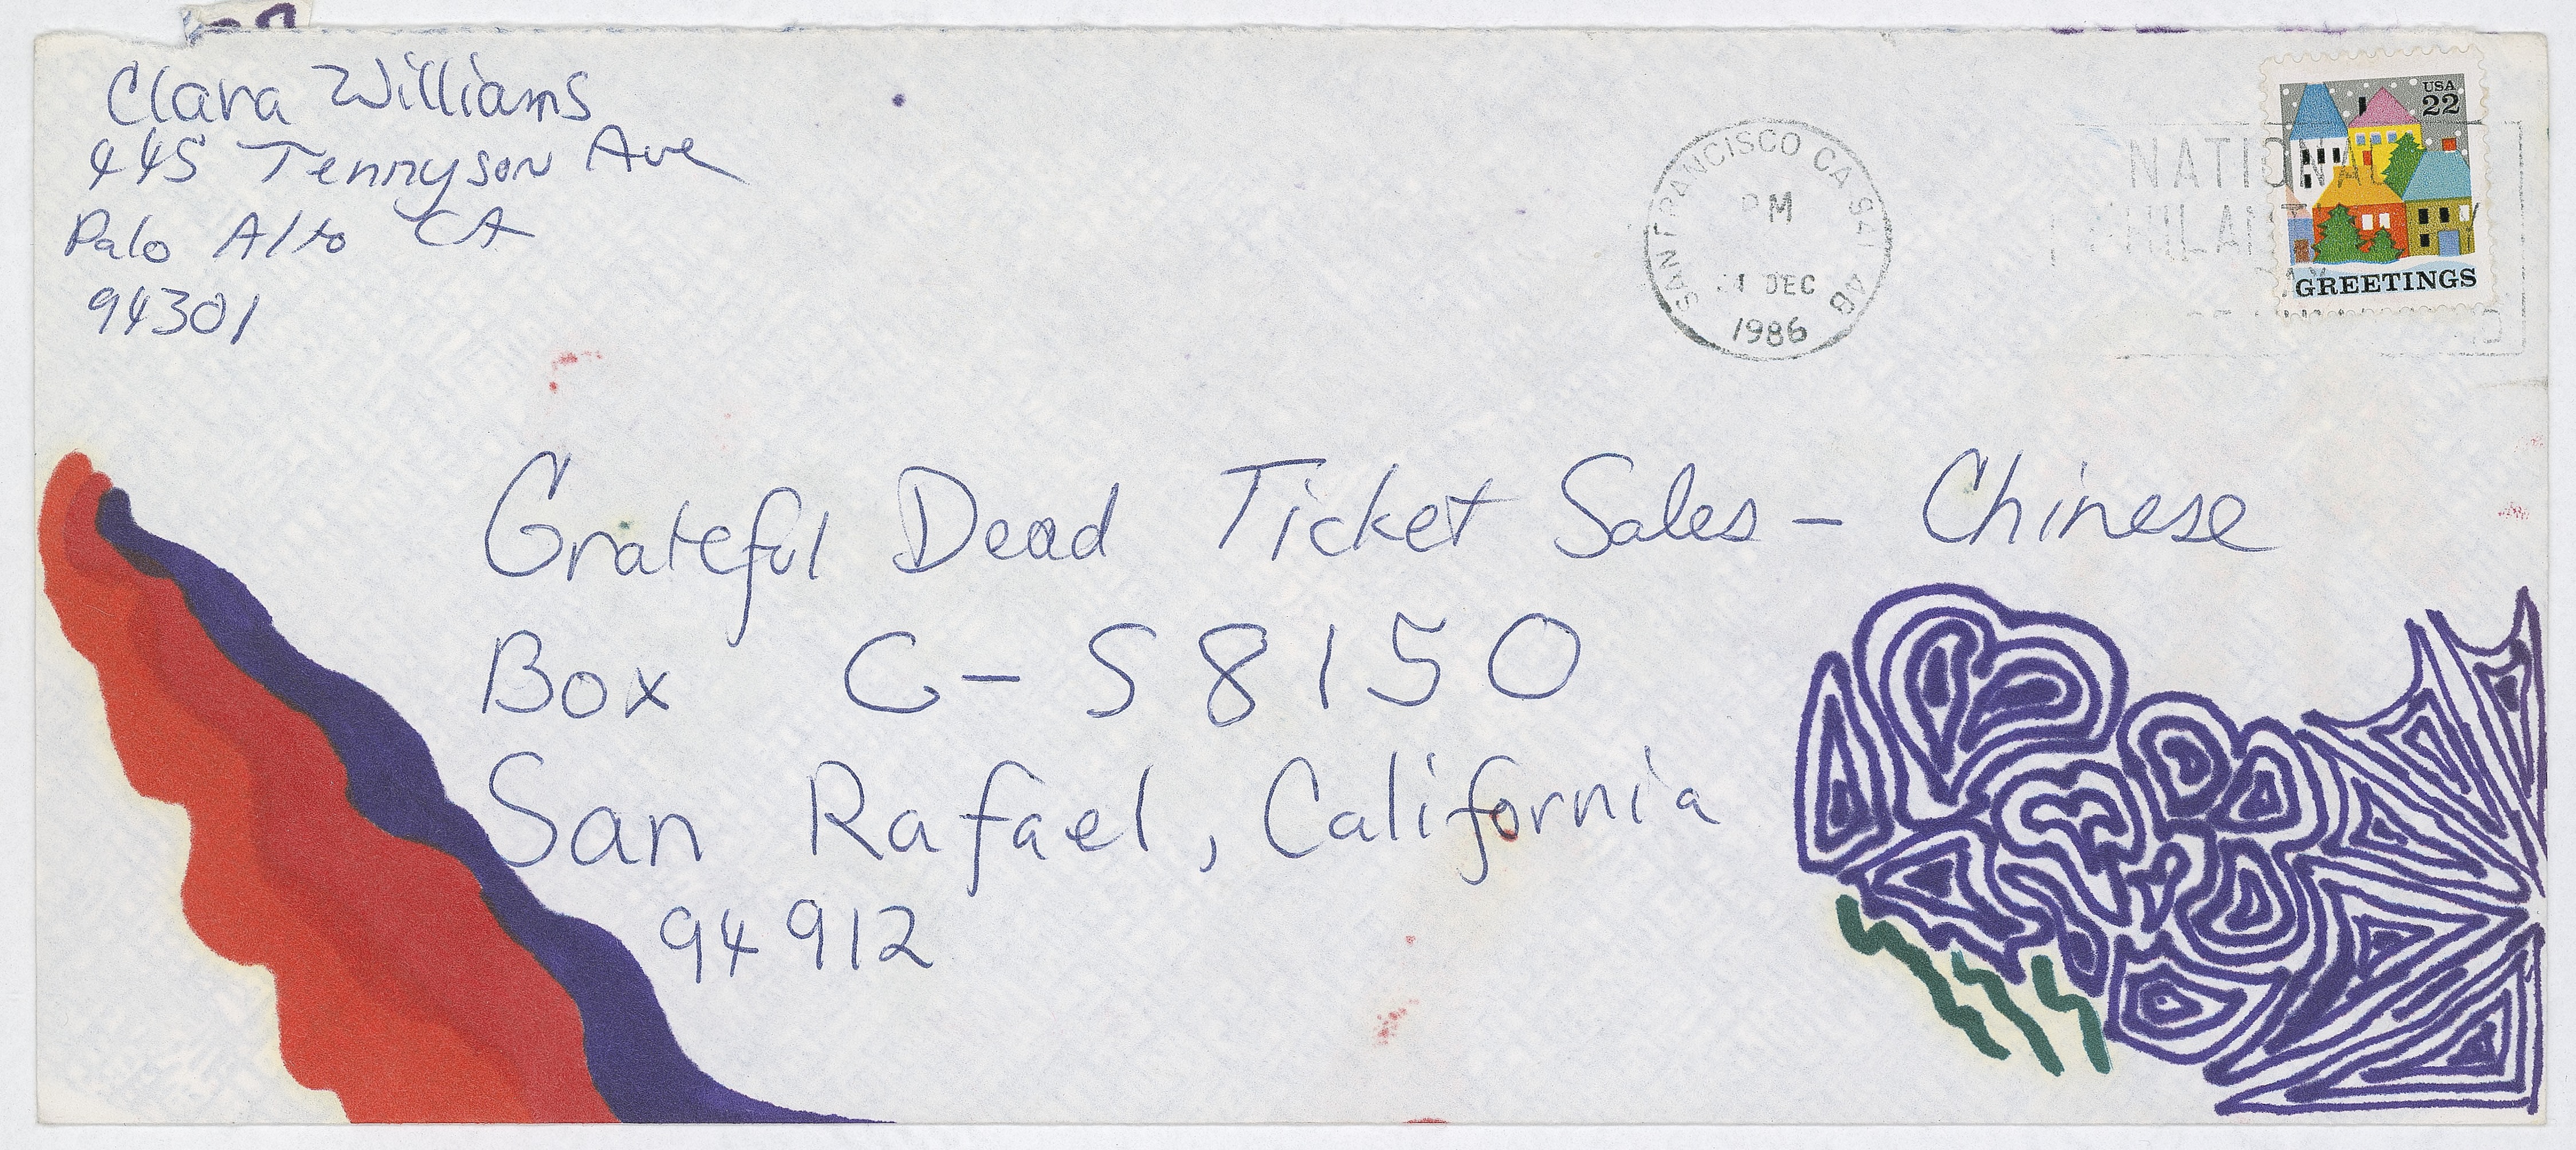 Clara Williams
445 Tennyson Ave
Palo Alto CA
94301
SAN FRANCISCO CA 941
PM
DEC
1986
USA
22
NATIONAL
GREETINGS
Grateful Dead Ticket Sales - Chinese
Box C-58150
San Rafael, California
94912